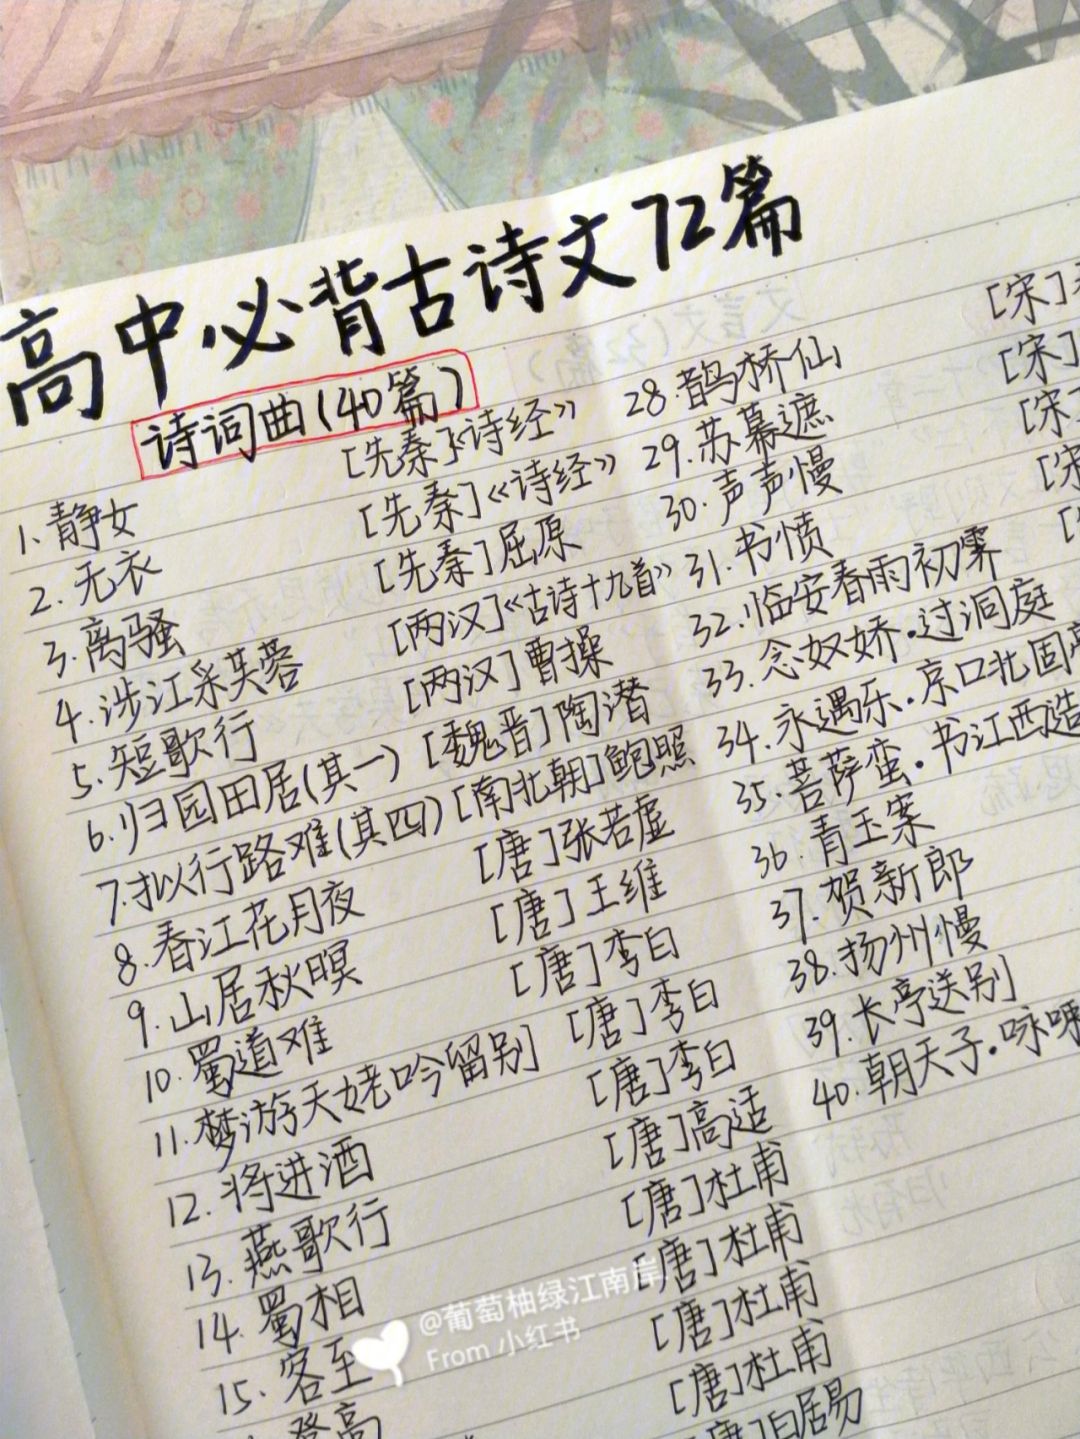 高中必背古诗文72篇
诗词曲(40篇)
1.静女 [先秦]《诗经》
2.无衣 [先秦]《诗经》
3.离骚 [先秦]屈原
4.涉江采芙蓉 [两汉]《古诗十九首》
5.短歌行 [两汉]曹操
6.归园田居(其一) [魏晋]陶潜
7.拟行路难(其四) [南北朝]鲍照
8.春江花月夜 [唐]张若虚
9.山居秋暝 [唐]王维
10.蜀道难 [唐]李白
11.梦游天姥吟留别 [唐]李白
12.将进酒 [唐]李白
13.燕歌行 [唐]高适
14.蜀相 [唐]杜甫
15.客至 [唐]杜甫
登高 [唐]杜甫
[唐]杜甫
[唐]白居易
28.鹊桥仙 [宋]
29.苏幕遮 [宋]
30.声声慢 [宋]
31.书愤 [宋]
32.临安春雨初霁
33.念奴娇·过洞庭
34.永遇乐·京口北固亭
35.菩萨蛮·书江西造
36.青玉案
37.贺新郎
38.扬州慢
39.长亭送别
40.朝天子·咏
@葡萄柚绿江南岸
From 小红书